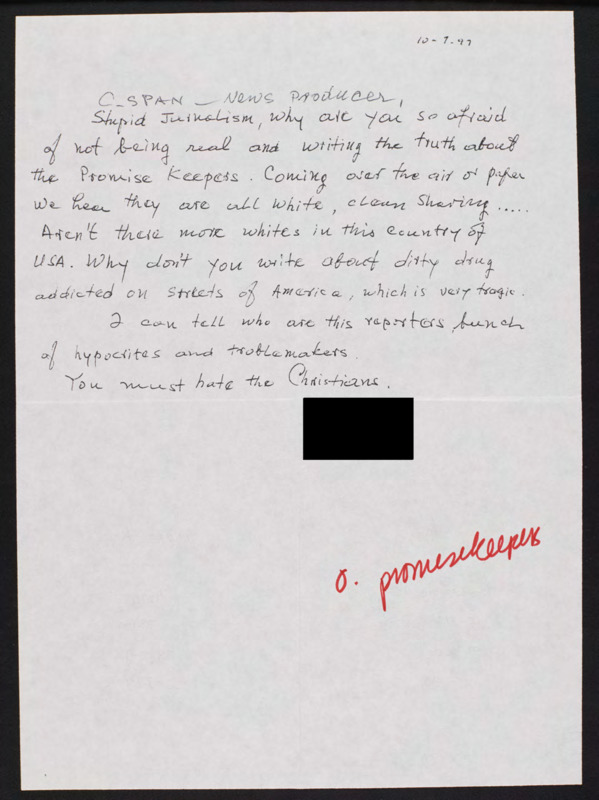 10-7-97
C-SPAN - News Producer,
Stupid Jurnalism, why are you so afraid
of not being real and writing the truth about
the Promise Keepers. Coming over the air or paper
we hear they are all white, clean shaving.....
Aren't there more whites in this country of
USA. Why don't you write about dirty drug
addicted on streets of America, which is very tragic.
I can tell who are this reporters, bunch
of hypocrites and troblemakers.
You must hate the Christians.
o. promisekeepers